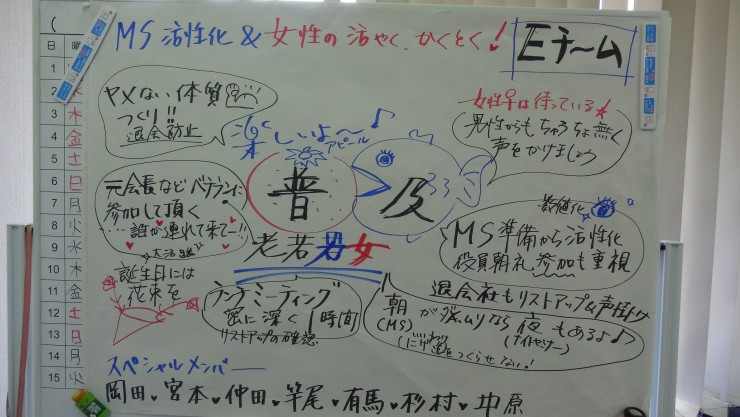 MS 活性化 & 女性の活やく、かくとく!
Eチーム
ヤメない体質
つくり!!
退会防止
楽しいよ〜♪
アピール
女性は待っている★
男性からもちゅうちょ無く
声をかけましょう
元会長などベテランに
参加して頂く
誰か連れて来てー!!
普及
老若男女
数値化
MS準備から活性化
役員朝礼参加も重視
誕生日には
花束を
ランチミーティング
密に深く1時間
リストアップの確認
退会社もリストアップ&声掛け
朝が
(MS)
ムリなら夜もあるよ♪
(ナイトセミナー)
をつくらせない!
スペシャルメンバー
岡田♥宮本♥仲田♥竿尾♥有馬♥杉村♥中原
(
日 曜
1
2 水
3 木
4 金
5 土
6 日
7 月
8 火
9 水
10 木
11 金
12 土
13 日
14 月
15 火